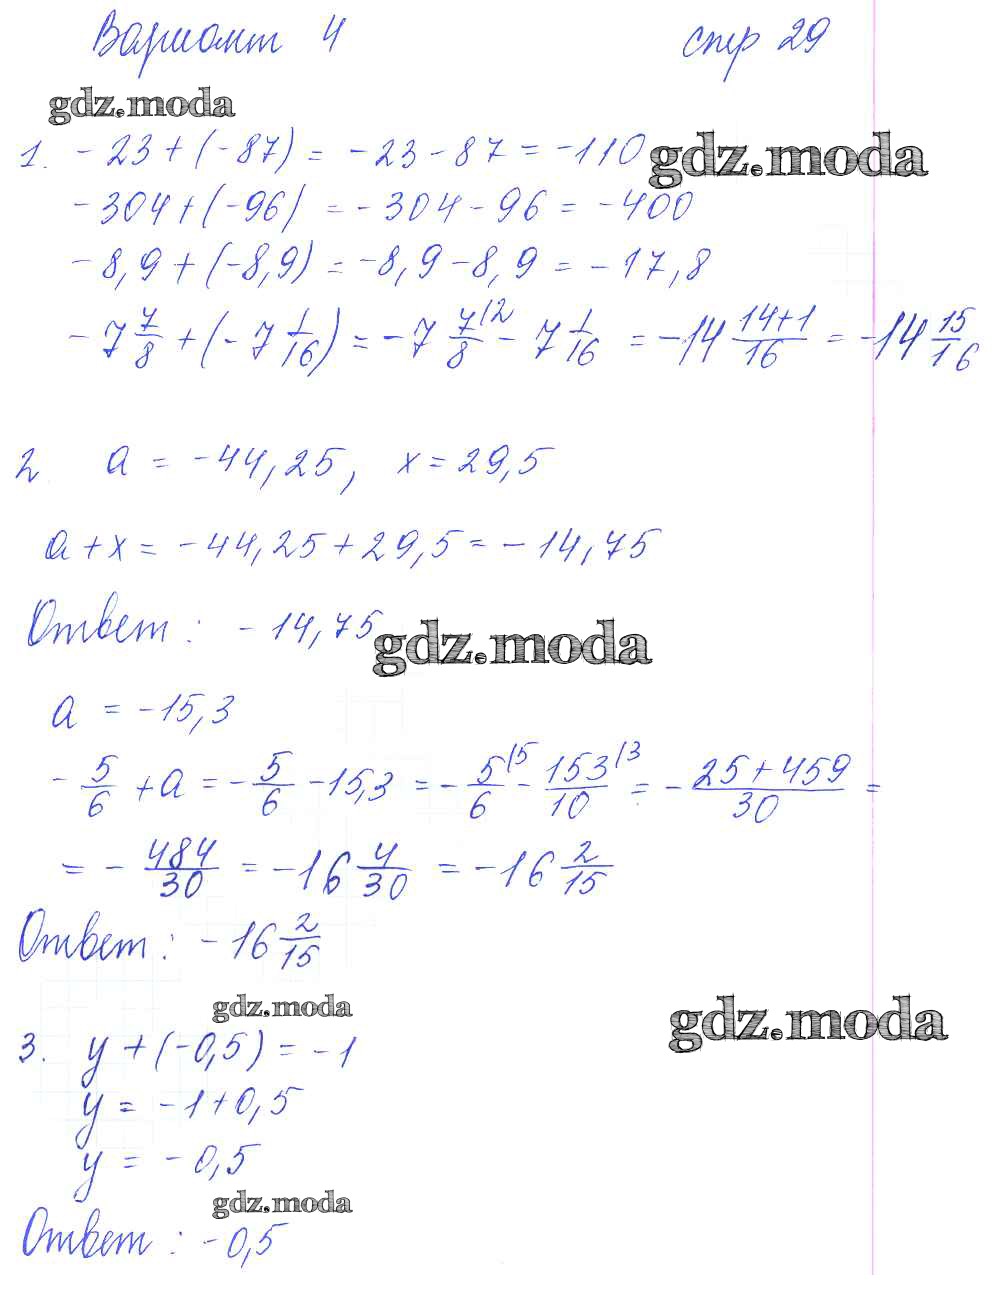 Вариант 4 стр 29
gdz.moda
1. -23+(-87) = -23-87 = -110
gdz.moda
-304+(-96) = -304-96 = -400
-8,9+(-8,9) = -8,9-8,9 = -17,8
-7 7/8 +(-7 1/16) = -7 7/8 |2 - 7 1/16 = -14 14+1/16 = -14 15/16
2 a = -44,25, x = 29,5
a+x = -44,25+29,5 = -14,75
Ответ: -14,75
gdz.moda
a = -15,3
-5/6 +a = -5/6 -15,3 = -5/6 |5 - 153/10 |3 = - 25+459/30 =
= - 484/30 = -16 4/30 = -16 2/15
Ответ: -16 2/15
gdz.moda
gdz.moda
3. y+(-0,5) = -1
y = -1+0,5
y = -0,5
gdz.moda
Ответ: -0,5